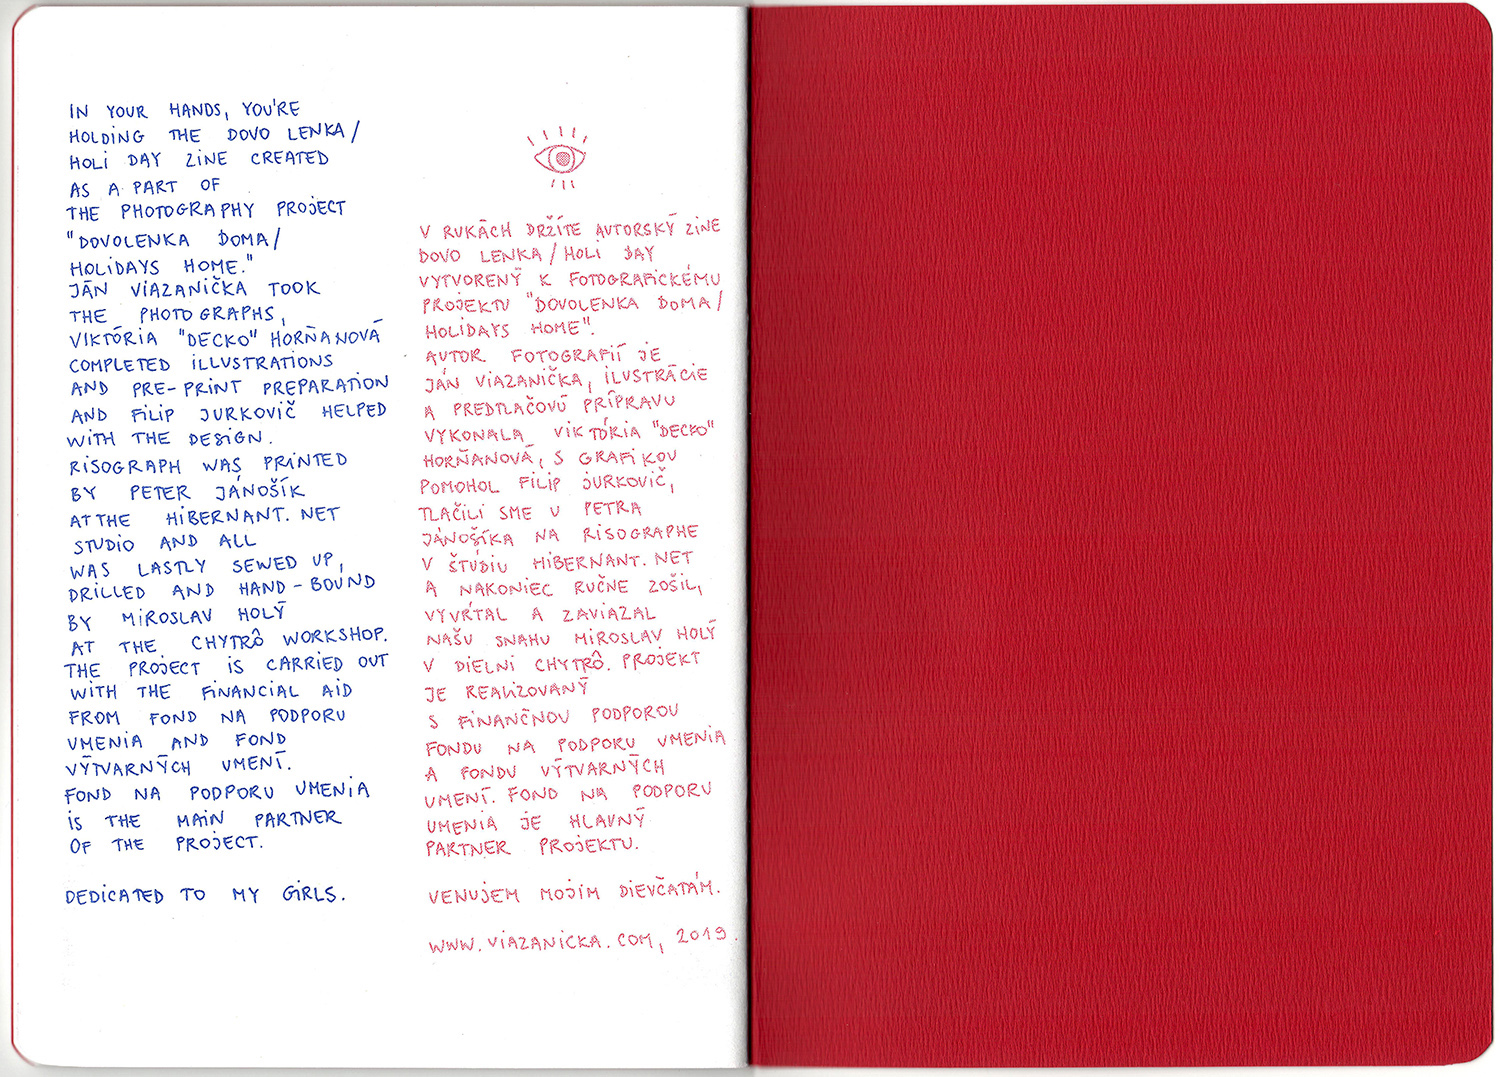 IN YOUR HANDS, YOU'RE
HOLDING THE DOVO LENKA/
HOLI DAY ZINE CREATED
AS A PART OF
THE PHOTOGRAPHY PROJECT
"DOVOLENKA DOMA/
HOLIDAYS HOME."
JÁN VIAZANIČKA TOOK
THE PHOTOGRAPHS,
VIKTÓRIA "DECKO" HORŇANOVÁ
COMPLETED ILLUSTRATIONS
AND PRE-PRINT PREPARATION
AND FILIP JURKOVIČ HELPED
WITH THE DESIGN.
RISOGRAPH WAS PRINTED
BY PETER JÁNOŠÍK
AT THE HIBERNANT.NET
STUDIO AND ALL
WAS LASTLY SEWED UP,
DRILLED AND HAND-BOUND
BY MIROSLAV HOLÝ
AT THE CHYTRÔ WORKSHOP.
THE PROJECT IS CARRIED OUT
WITH THE FINANCIAL AID
FROM FOND NA PODPORU
UMENIA AND FOND
VÝTVARNÝCH UMENÍ.
FOND NA PODPORU UMENIA
IS THE MAIN PARTNER
OF THE PROJECT.
DEDICATED TO MY GIRLS.
V RUKÁCH DRŽÍTE AUTORSKÝ ZINE
DOVO LENKA/HOLI DAY
VYTVORENÝ K FOTOGRAFICKÉMU
PROJEKTU "DOVOLENKA DOMA/
HOLIDAYS HOME".
AUTOR FOTOGRAFIÍ JE
JÁN VIAZANIČKA, ILUSTRÁCIE
A PREDTLAČOVÚ PRÍPRAVU
VYKONALA VIKTÓRIA "DECKO"
HORŇANOVÁ, S GRAFIKOU
POMOHOL FILIP JURKOVIČ,
TLAČILI SME U PETRA
JÁNOŠÍKA NA RISOGRAPHE
V ŠTÚDIU HIBERNANT.NET
A NAKONIEC RUČNE ZOŠIL,
VYVŔTAL A ZAVIAZAL
NAŠU SNAHU MIROSLAV HOLÝ
V DIELNI CHYTRÔ. PROJEKT
JE REALIZOVANÝ
S FINANČNOU PODPOROU
FONDU NA PODPORU UMENIA
A FONDU VÝTVARNÝCH
UMENÍ. FOND NA PODPORU
UMENIA JE HLAVNÝ
PARTNER PROJEKTU.
VENUJEM MOJIM DIEVČATÁM.
WWW.VIAZANICKA.COM, 2019.